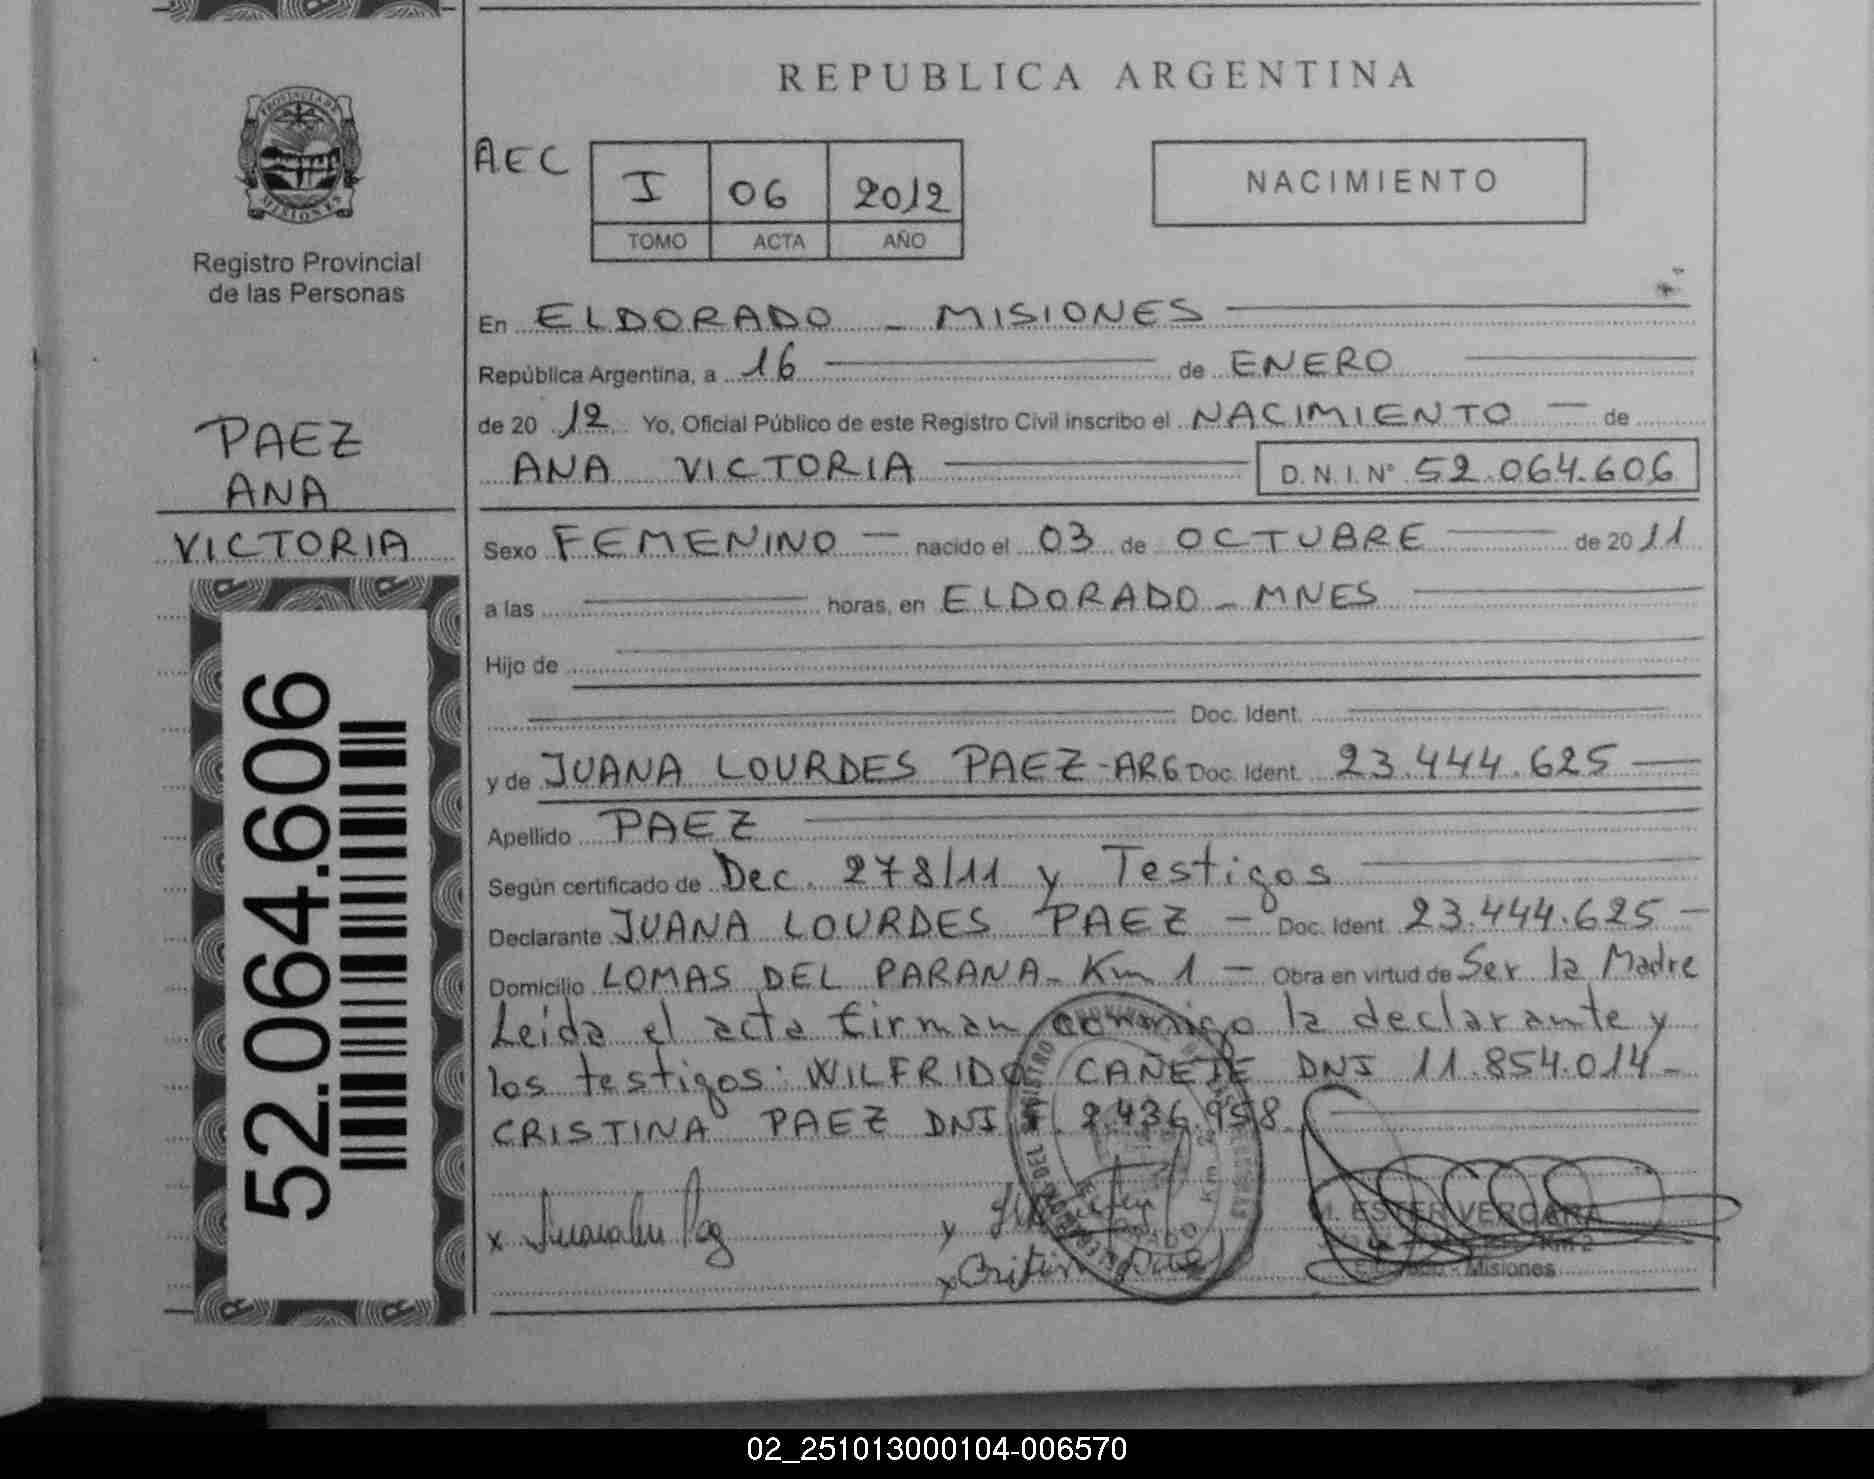 PROVINCIA DE
MISIONES
Registro Provincial
de las Personas
PAEZ
ANA
VICTORIA
52.064.606
REPUBLICA ARGENTINA
AEC
I 06 2012
TOMO ACTA AÑO
NACIMIENTO
En ELDORADO - MISIONES
República Argentina, a 16 de ENERO
de 20 12 Yo, Oficial Público de este Registro Civil inscribo el NACIMIENTO de
ANA VICTORIA D.N.I. Nº 52.064.606
Sexo FEMENINO nacido el 03 de OCTUBRE de 20 11
a las horas, en ELDORADO - MNES
Hijo de
Doc. Ident.
y de JUANA LOURDES PAEZ - ARG Doc. Ident. 23.444.625
Apellido PAEZ
Según certificado de Dec. 278/11 y Testigos
Declarante JUANA LOURDES PAEZ - Doc. Ident. 23.444.625 -
Domicilio LOMAS DEL PARANA - Km 1 - Obra en virtud de Ser la Madre
Leida el acta firman conmigo la declarante y
los testigos: WILFRIDO CAÑETE DNI 11.854.014 -
CRISTINA PAEZ DNI 2.436.958.
M. ESTER VERGARA
Km 2
Misiones
02_251013000104-006570